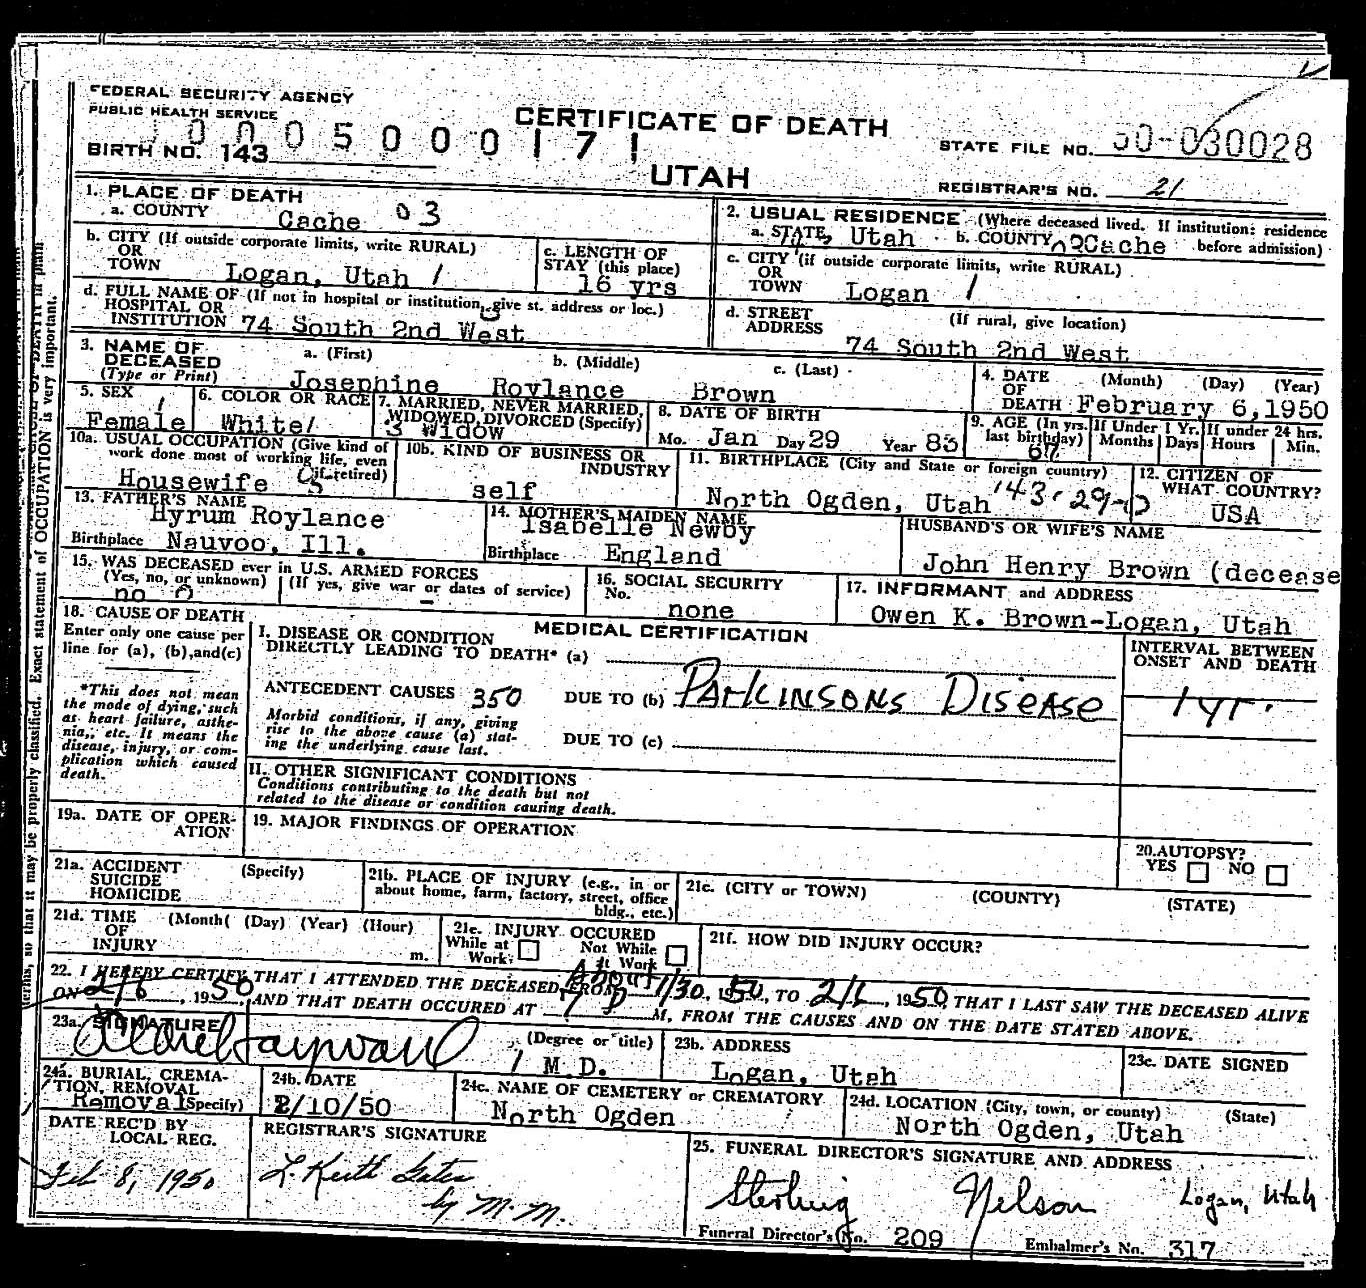 FEDERAL SECURITY AGENCY
PUBLIC HEALTH SERVICE
CERTIFICATE OF DEATH
UTAH
0005000171
BIRTH NO. 143
STATE FILE NO. 50-030028
REGISTRAR'S NO. 21
1. PLACE OF DEATH
a. COUNTY Cache 03
b. CITY (If outside corporate limits, write RURAL)
OR
TOWN Logan, Utah 1
c. LENGTH OF
STAY (this place)
16 yrs
d. FULL NAME OF (If not in hospital or institution, give st. address or loc.)
HOSPITAL OR
INSTITUTION 74 South 2nd West
2. USUAL RESIDENCE (Where deceased lived. If institution: residence
a. STATE Utah b. COUNTY Cache before admission)
c. CITY (if outside corporate limits, write RURAL)
OR
TOWN Logan 1
d. STREET
ADDRESS (If rural, give location)
74 South 2nd West
3. NAME OF
DECEASED
(Type or Print)
a. (First) b. (Middle) c. (Last)
Josephine Roylance Brown
4. DATE (Month) (Day) (Year)
OF
DEATH February 6, 1950
5. SEX
Female
6. COLOR OR RACE
White
7. MARRIED, NEVER MARRIED,
WIDOWED, DIVORCED (Specify)
3 Widow
8. DATE OF BIRTH
Mo. Jan Day 29 Year 83
9. AGE (In yrs. last birthday)
67
If Under 1 Yr. Months Days
If under 24 hrs. Hours Min.
10a. USUAL OCCUPATION (Give kind of
work done most of working life, even
if retired)
Housewife
10b. KIND OF BUSINESS OR
INDUSTRY
self
11. BIRTHPLACE (City and State or foreign country)
North Ogden, Utah
12. CITIZEN OF
WHAT COUNTRY?
USA
13. FATHER'S NAME
Hyrum Roylance
Birthplace Nauvoo, Ill.
14. MOTHER'S MAIDEN NAME
Isabelle Newby
Birthplace England
HUSBAND'S OR WIFE'S NAME
John Henry Brown (decease
15. WAS DECEASED ever in U.S. ARMED FORCES
(Yes, no, or unknown) (If yes, give war or dates of service)
no 0 -
16. SOCIAL SECURITY
No.
none
17. INFORMANT and ADDRESS
Owen K. Brown-Logan, Utah
18. CAUSE OF DEATH
Enter only one cause per
line for (a), (b), and (c)
*This does not mean
the mode of dying, such
as heart failure, asthe-
nia, etc. It means the
disease, injury, or com-
plication which caused
death.
MEDICAL CERTIFICATION
I. DISEASE OR CONDITION
DIRECTLY LEADING TO DEATH* (a)
ANTECEDENT CAUSES 350 DUE TO (b) Parkinsons Disease
Morbid conditions, if any, giving
rise to the above cause (a) stat-
ing the underlying cause last.
DUE TO (c)
INTERVAL BETWEEN
ONSET AND DEATH
1 yr.
II. OTHER SIGNIFICANT CONDITIONS
Conditions contributing to the death but not
related to the disease or condition causing death.
19a. DATE OF OPER-
ATION
19. MAJOR FINDINGS OF OPERATION
20. AUTOPSY?
YES NO
21a. ACCIDENT (Specify)
SUICIDE
HOMICIDE
21b. PLACE OF INJURY (e.g., in or
about home, farm, factory, street, office
bldg., etc.)
21c. (CITY or TOWN) (COUNTY) (STATE)
21d. TIME (Month( (Day) (Year) (Hour)
OF
INJURY m.
21e. INJURY OCCURED
While at Work
Not While At Work
21f. HOW DID INJURY OCCUR?
22. I HEREBY CERTIFY THAT I ATTENDED THE DECEASED FROM About 1/30, 1950, TO 2/6, 1950, THAT I LAST SAW THE DECEASED ALIVE
ON 2/6, 1950, AND THAT DEATH OCCURED AT 7 P M, FROM THE CAUSES AND ON THE DATE STATED ABOVE.
23a. SIGNATURE
Hayward (Degree or title)
M.D.
23b. ADDRESS
Logan, Utah
23c. DATE SIGNED
24a. BURIAL, CREMA-
TION, REMOVAL
Removal (Specify)
24b. DATE
2/10/50
24c. NAME OF CEMETERY or CREMATORY
North Ogden
24d. LOCATION (City, town, or county) (State)
North Ogden, Utah
DATE REC'D BY
LOCAL REG.
Feb 8, 1950
REGISTRAR'S SIGNATURE
L Keith Gates
by M.M.
25. FUNERAL DIRECTOR'S SIGNATURE AND ADDRESS
Sterling Nelson Logan, Utah
Funeral Director's No. 209 Embalmer's No. 317
terms, so that it may be properly classified. Exact statement of OCCUPATION is very important.